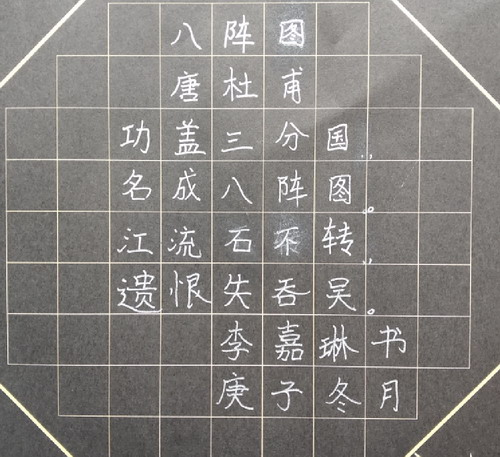 八阵图
唐杜甫
功盖三分国，
名成八阵图。
江流石不转，
遗恨失吞吴。
李嘉琳书
庚子冬月